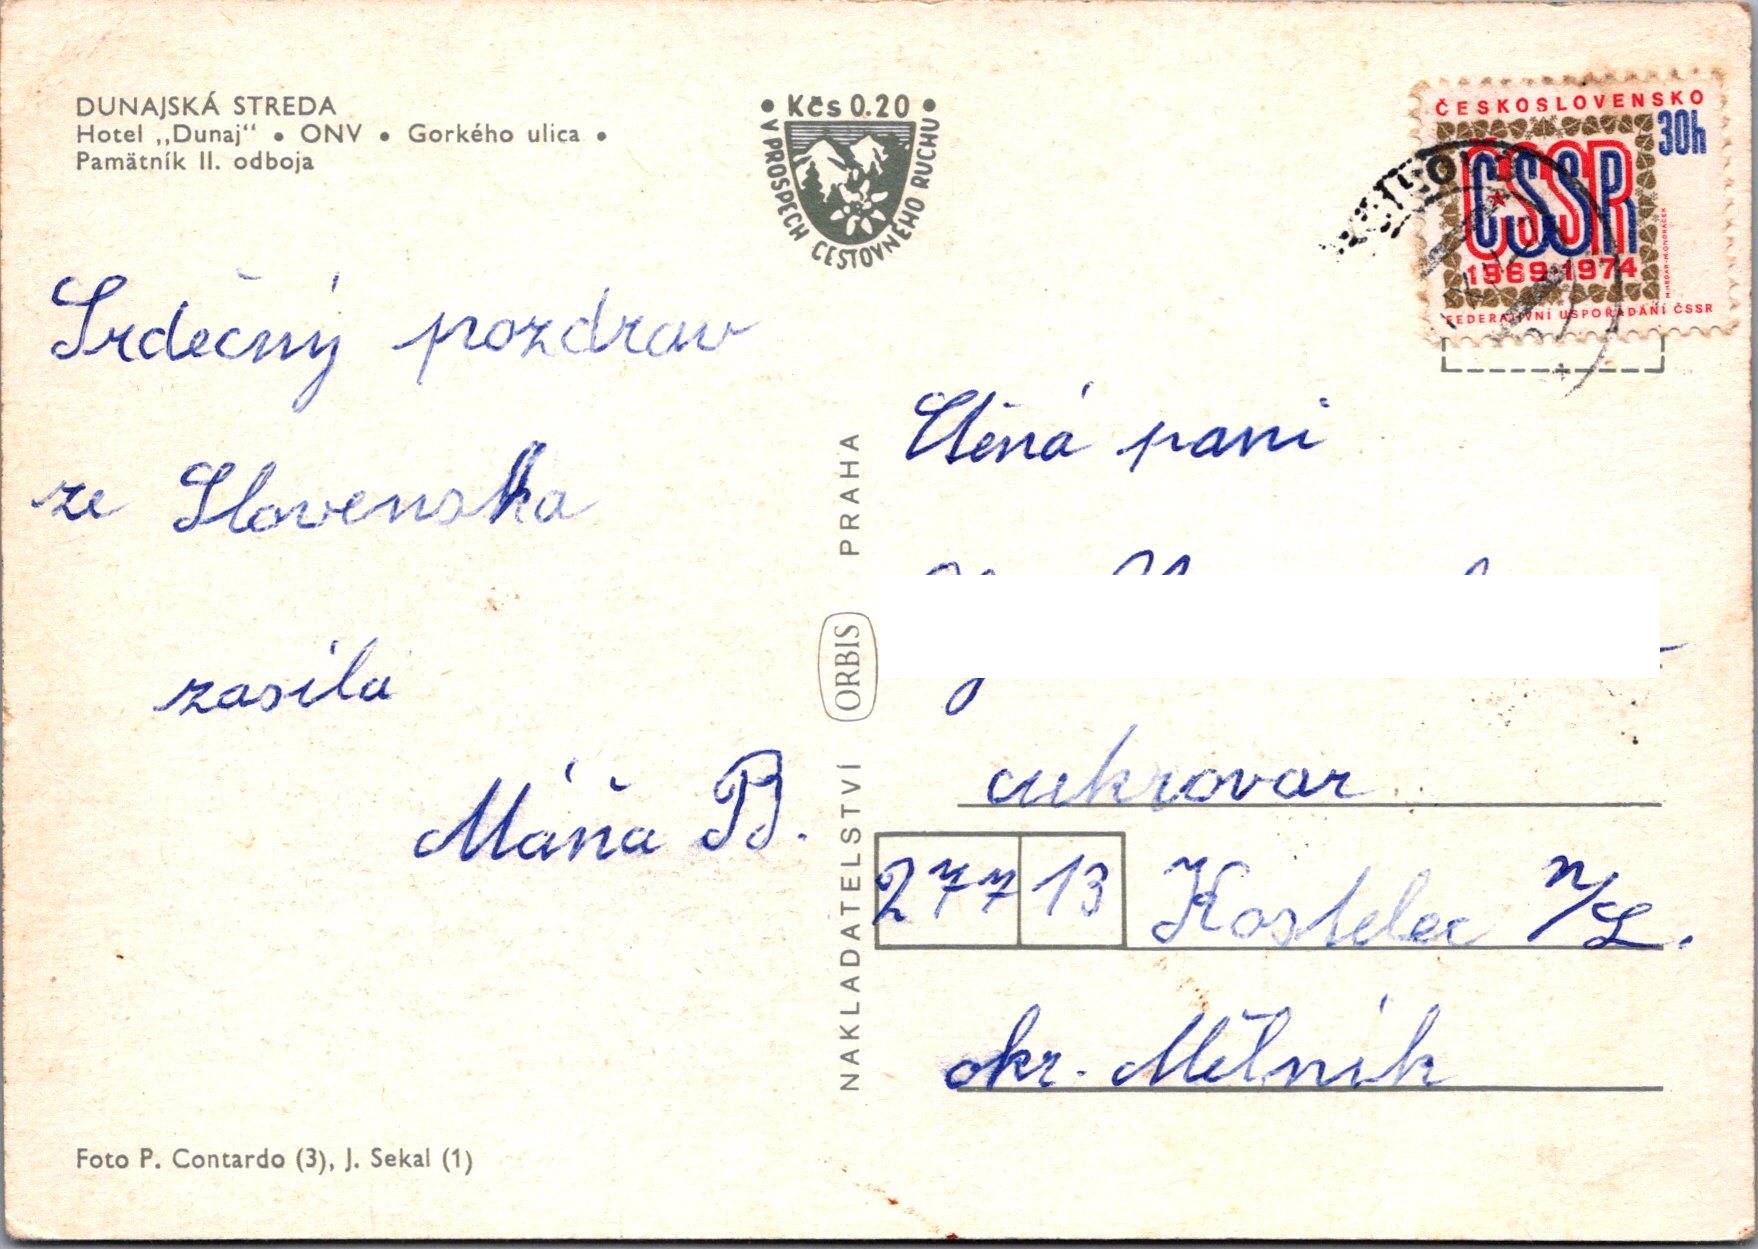 DUNAJSKÁ STREDA
Hotel „Dunaj“ • ONV • Gorkého ulica •
Pamätník II. odboja
• Kčs 0.20 •
V PROSPECH CESTOVNÉHO RUCHU
ČESKOSLOVENSKO
30h
ČSSR
1969-1974
FEDERATIVNÍ USPOŘÁDÁNÍ ČSSR
Srdečný pozdrav
ze Slovenska
zasílá
Máňa B.
NAKLADATELSTVÍ ORBIS PRAHA
Ctěná paní
cukrovar
277 13 Kostelec n/L.
okr. Mělník
Foto P. Contardo (3), J. Sekal (1)